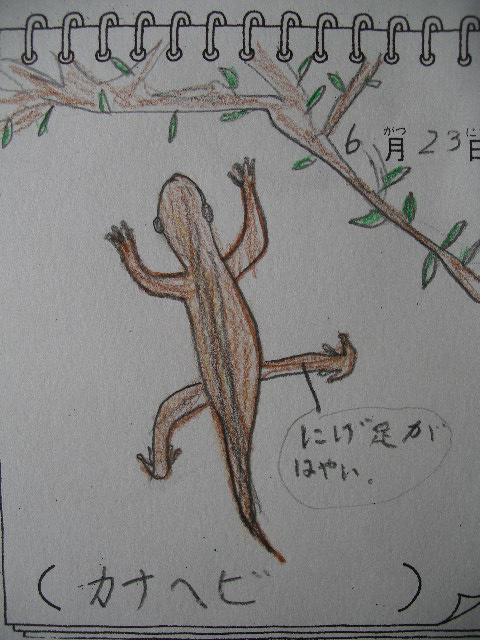 6月23日
にげ足が
はやい。
(カナヘビ)